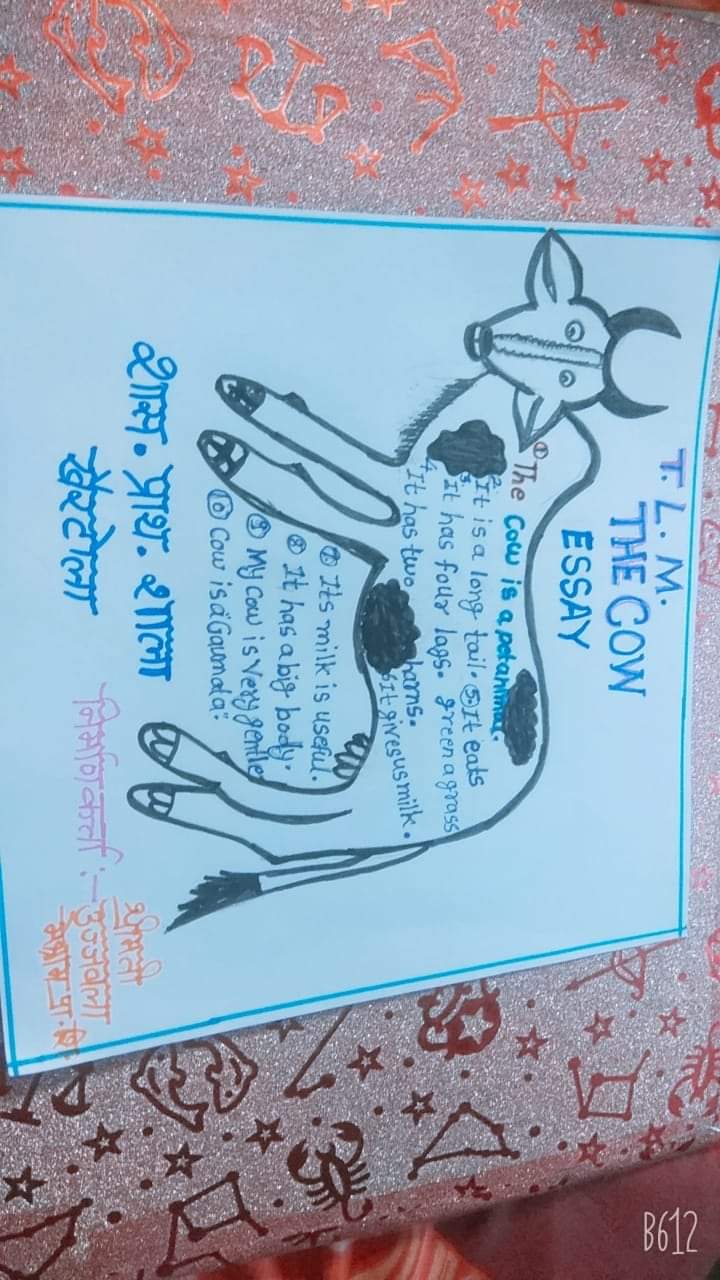 T. L. M.
THE COW
ESSAY
① The cow is a petanimal.
2. It is a long tail. ⑤ It eats
3. It has four lags. green a grass
4. It has two harns.
6 It gives us milk.
⑦ Its milk is useful.
⑧ It has a big body.
⑨ My cow is very gentle
⑩ Cow is a "Gaumata".
शास. प्राथ. शाला
खैरटोला
निर्माणकर्ता :-
श्रीमती
उज्जवला
B612